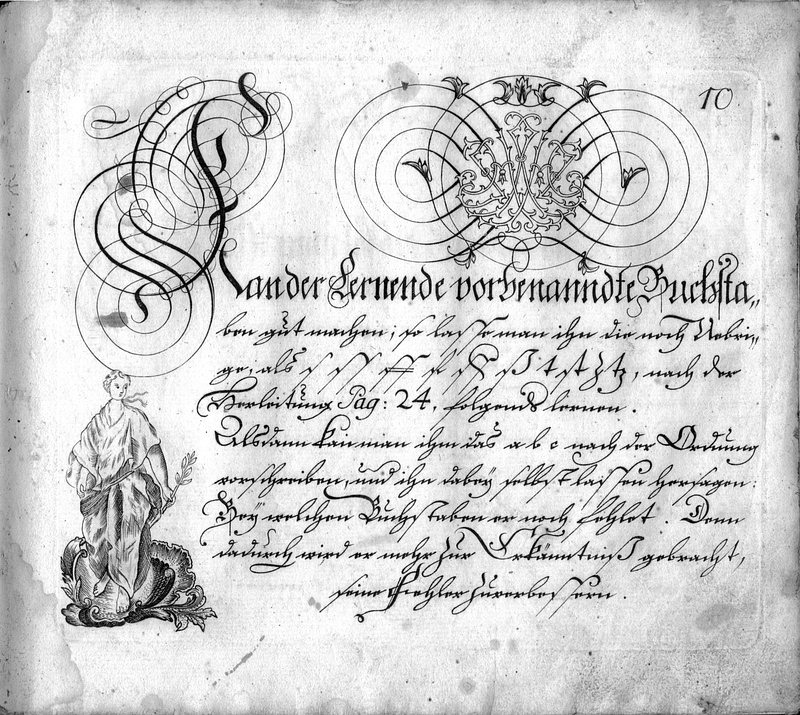 10.
Kan der Lernende vorbenanndte Buchsta„
ben gut machen; so lasse man ihn die noch Uebri„
ge, als ſ ſſ ff ſi ſß ß t st z tz, nach der
Herleitung Pag: 24, folgends lernen.
Alsdann kan man ihm das a b c nach der Ordnung
vorschreiben, und ihn dabey selbst lassen hersagen:
Bey welchen Buchstaben er noch fehlet. Denn
dadurch wird er mehr zur Erkänntniß gebracht,
seine Fiehler zuverbessern.